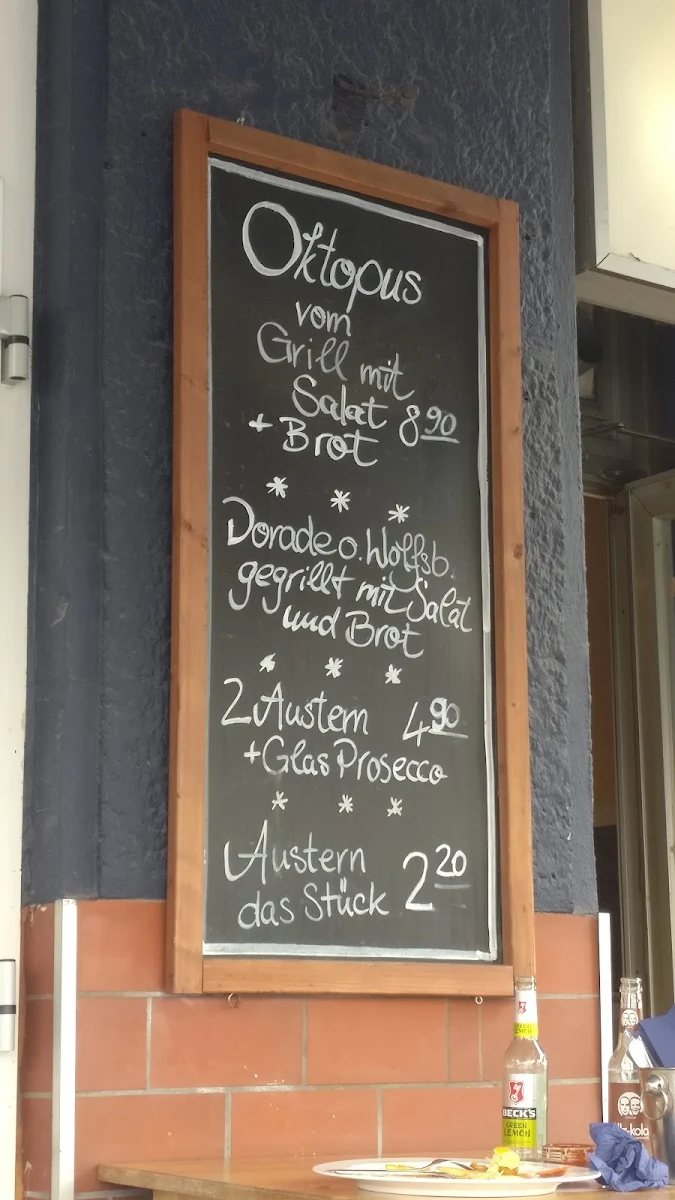 Oktopus
vom
Grill mit
Salat 8 90
+ Brot
* * *
Dorade o. Wolfsb.
gegrillt mit Salat
und Brot
* * *
2 Austern 4 90
+ Glas Prosecco
* * *
Austern
das Stück 2 20
BECK'S
GREEN
LEMON
kola